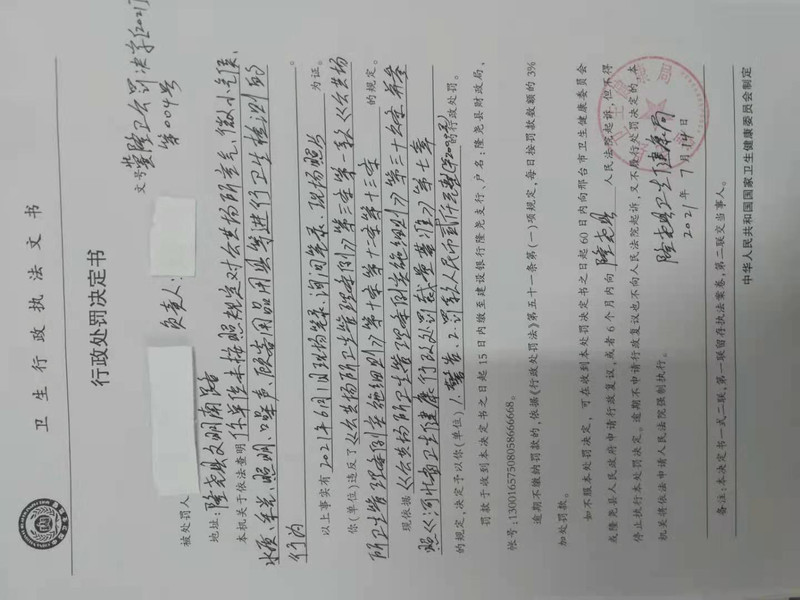 卫生行政执法文书
行政处罚决定书
文号 冀隆卫公罚决字[2021]
第004号
被处罚人 负责人:
地址:隆尧县文明南路
本机关于依法查明 你单位未按照规定对公共场所空气、微小气候、
水质、采光、照明、噪声、顾客用品用具等进行卫生检测的
行为 。
以上事实有 2021年6月1日现场笔录、询问笔录、现场照片 为证。
你(单位)违反了《公共场所卫生管理条例》第三条第一款《公共场
所卫生管理条例实施细则》 的规定。
现依据《公共场所卫生管理条例实施细则》第三十六条 并参
照《河北省卫生健康行政处罚裁量基准》第七章
的规定,决定予以你(单位)1.警告、2.罚款人民币 的行政处罚。
罚款于收到本决定书之日起15日内缴至建设银行隆尧支行、户名:隆尧县财政局、
帐号:13001657508058666668。
逾期不缴纳罚款的,依据《行政处罚法》第五十一条第(一)项规定,每日按罚款数额的3%
加处罚款。
如不服本处罚决定,可在收到本处罚决定书之日起60日内向邢台市卫生健康委员会
或隆尧县人民政府申请行政复议,或者6个月内向 隆尧县 人民法院起诉,但不得
停止执行本处罚决定。逾期不申请行政复议也不向人民法院起诉,又不履行处罚决定的,本
机关将依法申请人民法院强制执行。
隆尧县卫生健康局
2021年7月14日
备注:本决定书一式二联,第一联留存执法案卷,第二联交当事人。
中华人民共和国国家卫生健康委员会制定